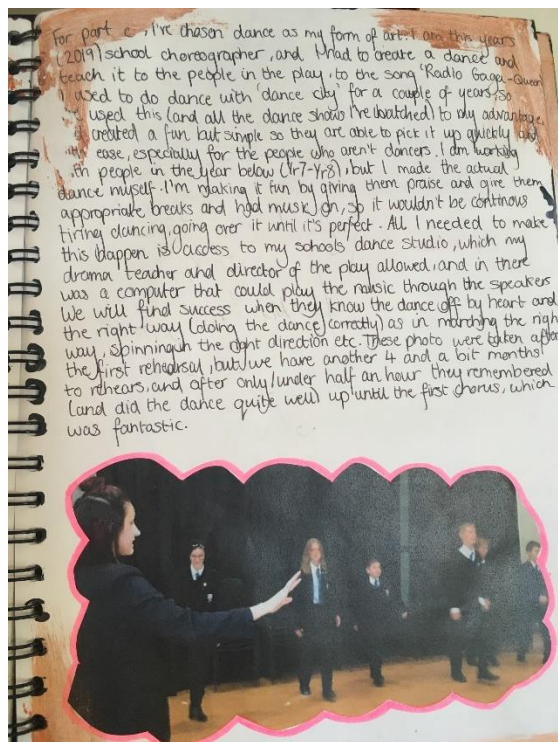 For part c, I've chosen dance as my form of art. I am this years
(2019) school choreographer, and I had to create a dance and
teach it to the people in the play, to the song 'Radio Gaga - Queen
I used to do dance with 'dance city' for a couple of years, so
I used this (and all the dance shows I've watched) to my advantage.
I created a fun but simple so they are able to pick it up quickly and
with ease, especially for the people who aren't dancers. I am working
with people in the year below (Yr7-Yr8), but I made the actual
dance myself. I'm making it fun by giving them praise and give them
appropriate breaks and had music on, so it wouldn't be continous
tiring dancing, going over it until it's perfect. All I needed to make
this happen is access to my schools dance studio, which my
drama teacher and director of the play allowed, and in there
was a computer that could play the music through the speakers
We will find success when they know the dance off by heart and
the right way (doing the dance correctly) as in marching the right
way, spinning in the right direction etc. These photo were taken after
the first rehearsal, but we have another 4 and a bit months
to rehears, and after only/under half an hour they remembered
(and did the dance quite well) up until the first chorus, which
was fantastic.